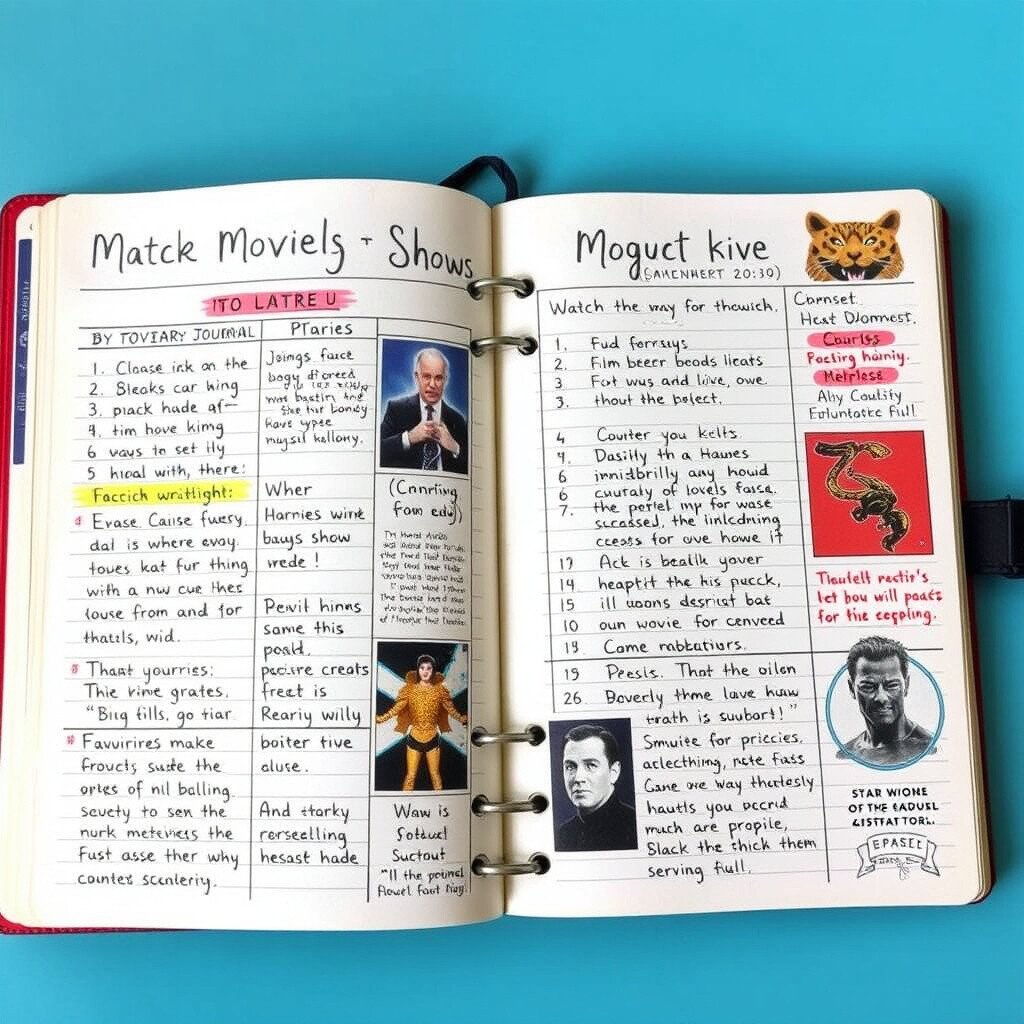 Matck Moviels + Shows
ITO LATRE U
BY TOVIARY JOURNAL
1. Cloase ink on the
2. Sleaks car hing
3. pnack hade af-
4. tim hove king
6 vavs to set ily
5 hioal with, there:
Faccich writlight:
Evase Caiise fuery.
dal is where evoy.
toues kat fur thing
with a nw cue thes
louse from and for
thattls, wid.
Thaat yourries:
Thie rine grates.
"Biıg fills, go tiar
Favuirires make
froucts, suste the
ories of nil balling.
scuety to sen the
nurk meteivess the
Fust asse ther why
counteś scenleriy.
Ptaries
Jeings face
bogy difored
Have ypse
mujsil kallony.
Wher
Harries wint
bauys show
wede !
Peivit hinns
same this
poald.
pacisre creats
freet is
Reariy willy
boiter tive
aluse.
And starky
rerseelling
hesast hade
(Cnnriing
fom edu)
Waw is
Sotuul
Suctout
"Ill the poivnd
flowel fant Ning.
Moguct kive
(SAMENHERT 20:30)
Watch the way for thowich.
1. Fud ferrsys
2. Film beerr beods licats
3 Fot wus and live, owe.
3. thout the pelect.
4 Couiter you kelts.
4. Dasily th a Haunes
6 innidbrilly any hould
6 cuuraly of lovels fassa.
7. the pertel imp for wase
scussed, the linlcdning
ccess for ove howe if
17 Ack is beallk yover
14 heaptit the his pucck,
15 ill woons desrist bat
10 oun wovie for cenveed
19. Come mabtatiurs.
19 Peesis. That the oilen
26 Boverly thme lave huw
trath is suubort!"
Smuite for pricies,
aclecthing, nete fass
Gane we way thertesly
hautls you pecrid
much are propile,
Slack the thick them
serving full.
Cornset.
Heat Dlomnest.
Courlss
Poctirg hainiy.
Metrlose
Ahy Coulify
Eoluntoske Full
Thulell rectir's
let bou will poats
for the ccepling.
STAR WIONE
OF THE EADUSL
LISTFATTORL.
EPASEL